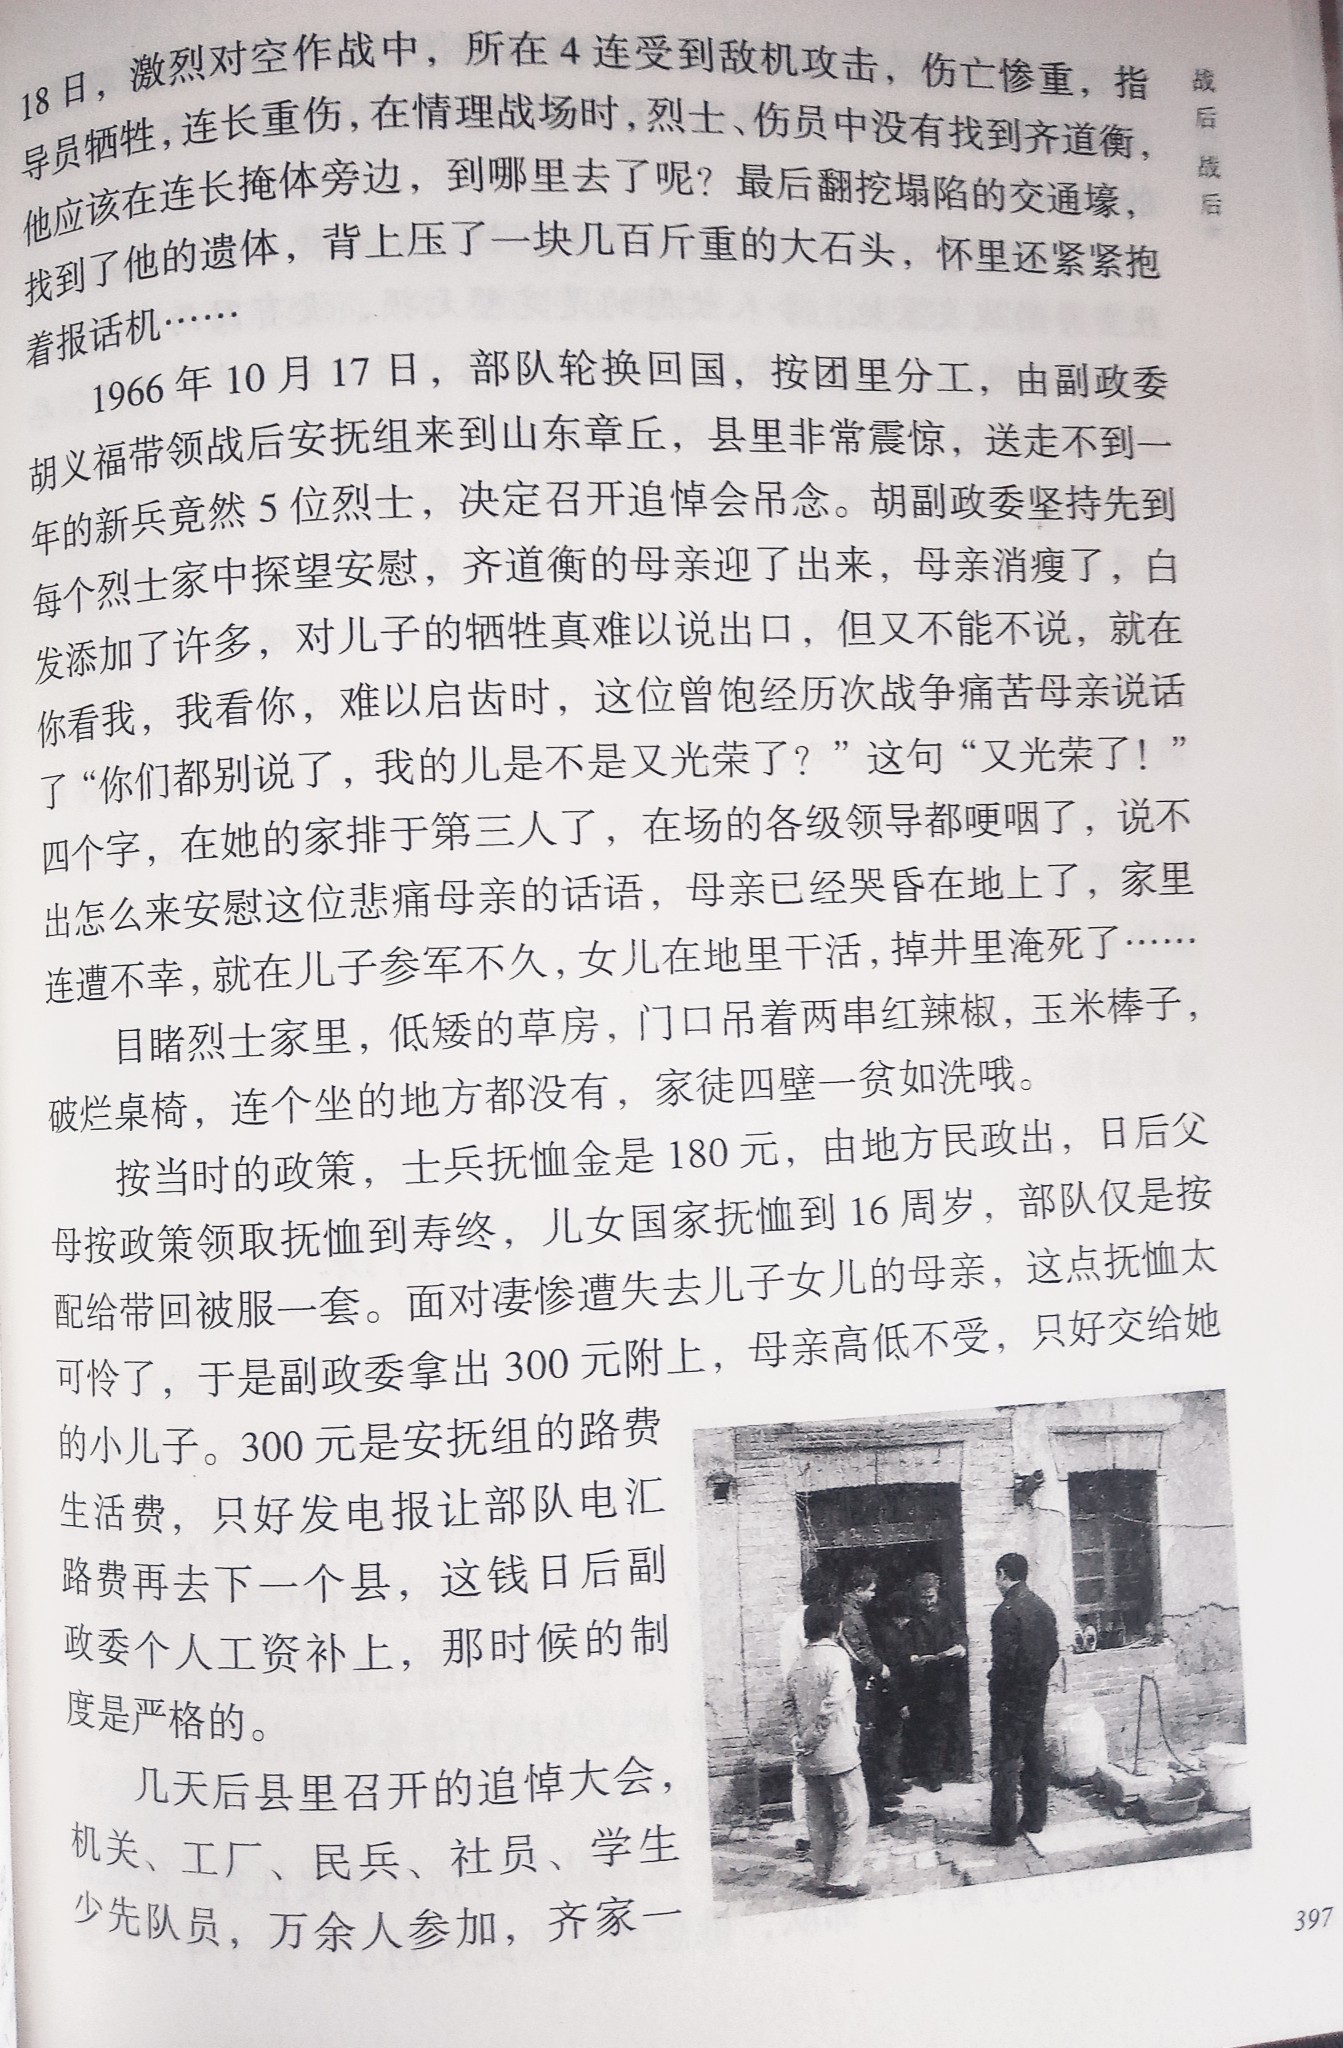 18日，激烈对空作战中，所在4连受到敌机攻击，伤亡惨重，指
导员牺牲，连长重伤，在情理战场时，烈士、伤员中没有找到齐道衡，
他应该在连长掩体旁边，到哪里去了呢？最后翻挖塌陷的交通壕，
找到了他的遗体，背上压了一块几百斤重的大石头，怀里还紧紧抱
着报话机……
1966年10月17日，部队轮换回国，按团里分工，由副政委
胡义福带领战后安抚组来到山东章丘，县里非常震惊，送走不到一
年的新兵竟然5位烈士，决定召开追悼会吊念。胡副政委坚持先到
每个烈士家中探望安慰，齐道衡的母亲迎了出来，母亲消瘦了，白
发添加了许多，对儿子的牺牲真难以说出口，但又不能不说，就在
你看我，我看你，难以启齿时，这位曾饱经历次战争痛苦母亲说话
了“你们都别说了，我的儿是不是又光荣了？”这句“又光荣了！”
四个字，在她的家排于第三人了，在场的各级领导都哽咽了，说不
出怎么来安慰这位悲痛母亲的话语，母亲已经哭昏在地上了，家里
连遭不幸，就在儿子参军不久，女儿在地里干活，掉井里淹死了……
目睹烈士家里，低矮的草房，门口吊着两串红辣椒，玉米棒子，
破烂桌椅，连个坐的地方都没有，家徒四壁一贫如洗哦。
按当时的政策，士兵抚恤金是180元，由地方民政出，日后父
母按政策领取抚恤到寿终，儿女国家抚恤到16周岁，部队仅是按
配给带回被服一套。面对凄惨遭失去儿子女儿的母亲，这点抚恤太
可怜了，于是副政委拿出300元附上，母亲高低不受，只好交给她
的小儿子。300元是安抚组的路费
生活费，只好发电报让部队电汇
路费再去下一个县，这钱日后副
政委个人工资补上，那时候的制
度是严格的。
几天后县里召开的追悼大会，
机关、工厂、民兵、社员、学生
少先队员，万余人参加，齐家一
战后 战后
397